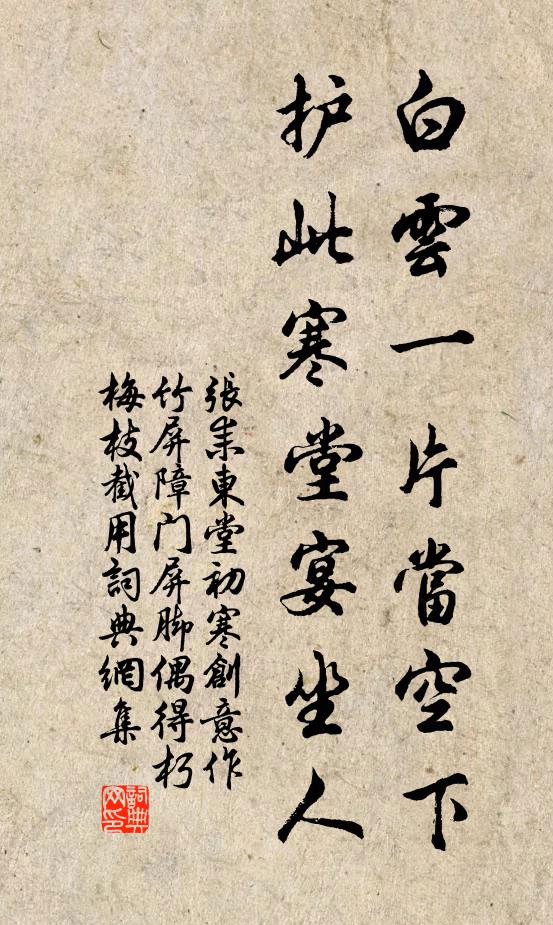 白雲一片當空下
护此寒堂宴坐人
張耒東堂初寒創意作
竹屏障门屏脚偶得朽
梅枝截用詞典網集
詞典網印